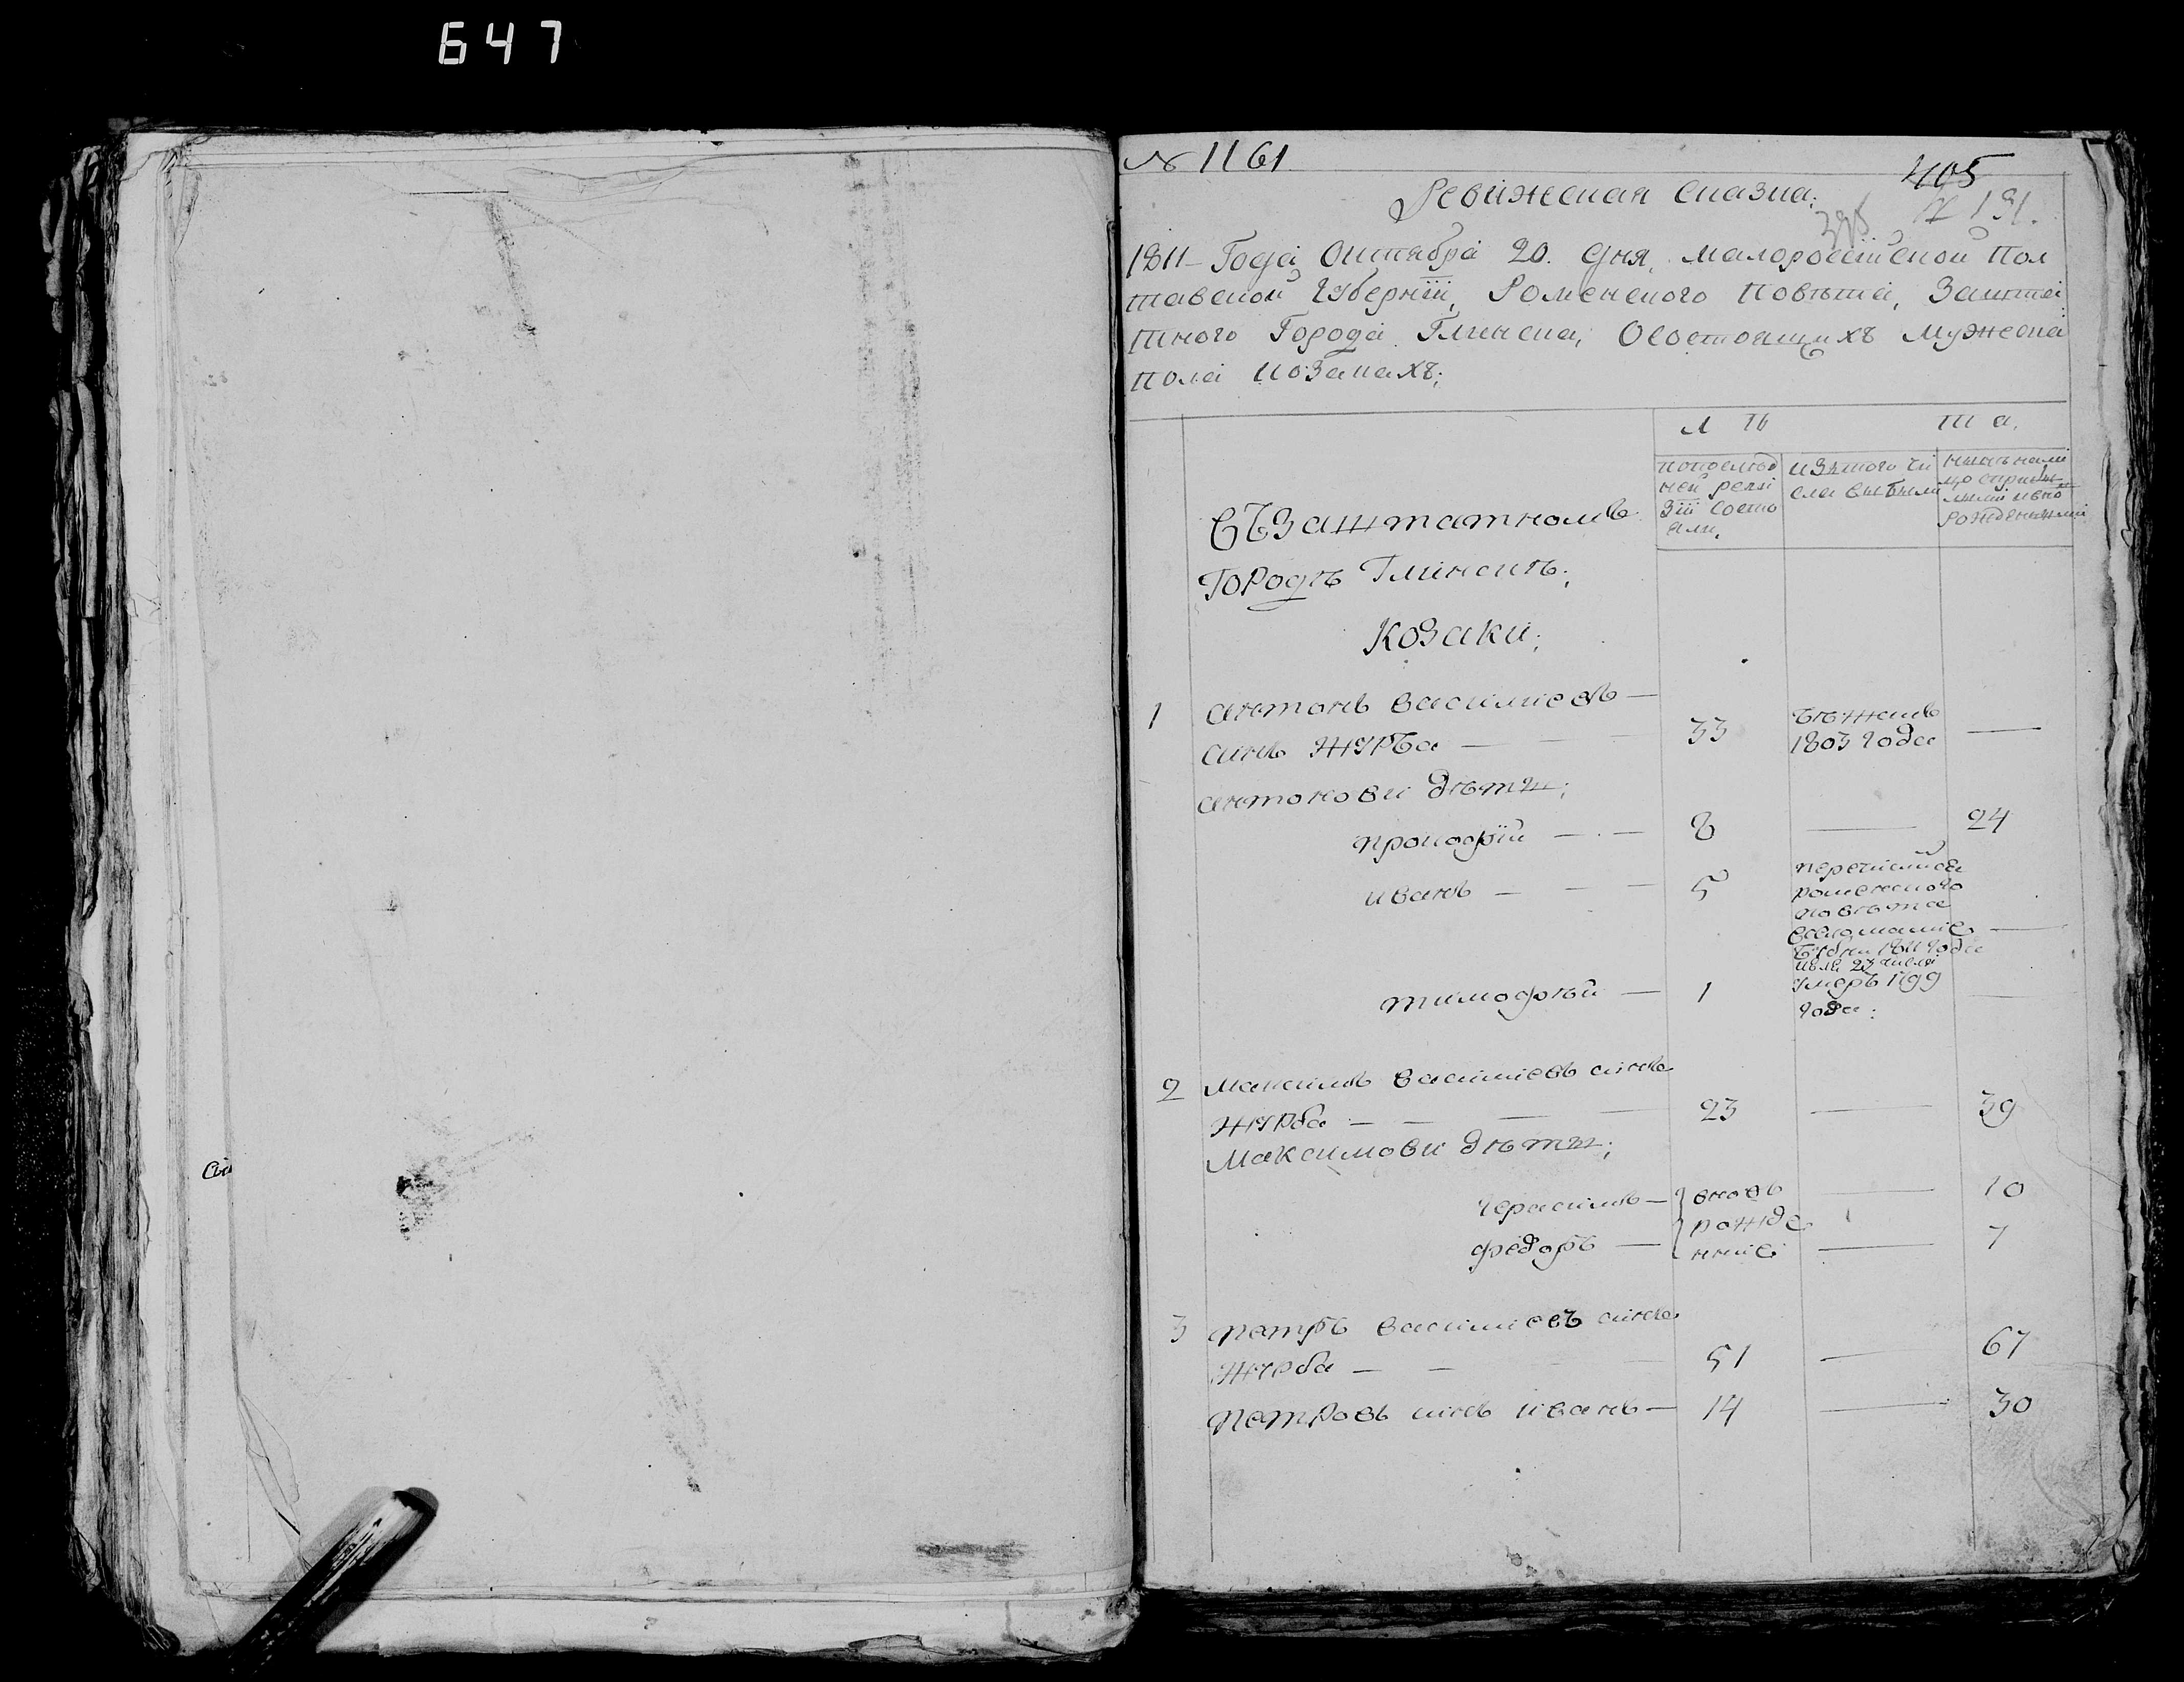 647
№ 1161
405
Ревижская сказка;
395 № 191.
1811 Года Октября 20. дня, малоросїйской Пол
тавской Губернїи, Роменского повѣта, Заштат
тного Города Глинска, О состоящихъ мужеска
пола козакахъ;
Л Ѣ Т А.
по послѣд
ней реви
зїи состо
яли,
изъ того чи
сла выбыли
нынѣ нали
цо
рожденными
Въ Заштатномъ
Городѣ Глинскѣ;
Козаки;
1 антонъ василиевъ —
синъ Журба — 33 бѣжалъ
1803 года —
антонови дѣти;
прокофїй — 8 — 24
иванъ — 5
роменского
повѣта
1811 года
тимофѣй — 1 умеръ 1799
года; —
2 Максимъ василиевъ синъ
Журба — 23 — 39
Максимови дѣти;
герасимъ — вновь — 10
рожде
федоръ — ннїе — 7
3 петръ василиевъ синъ
Журба — 51 — 67
петровъ синъ иванъ — 14 — 30